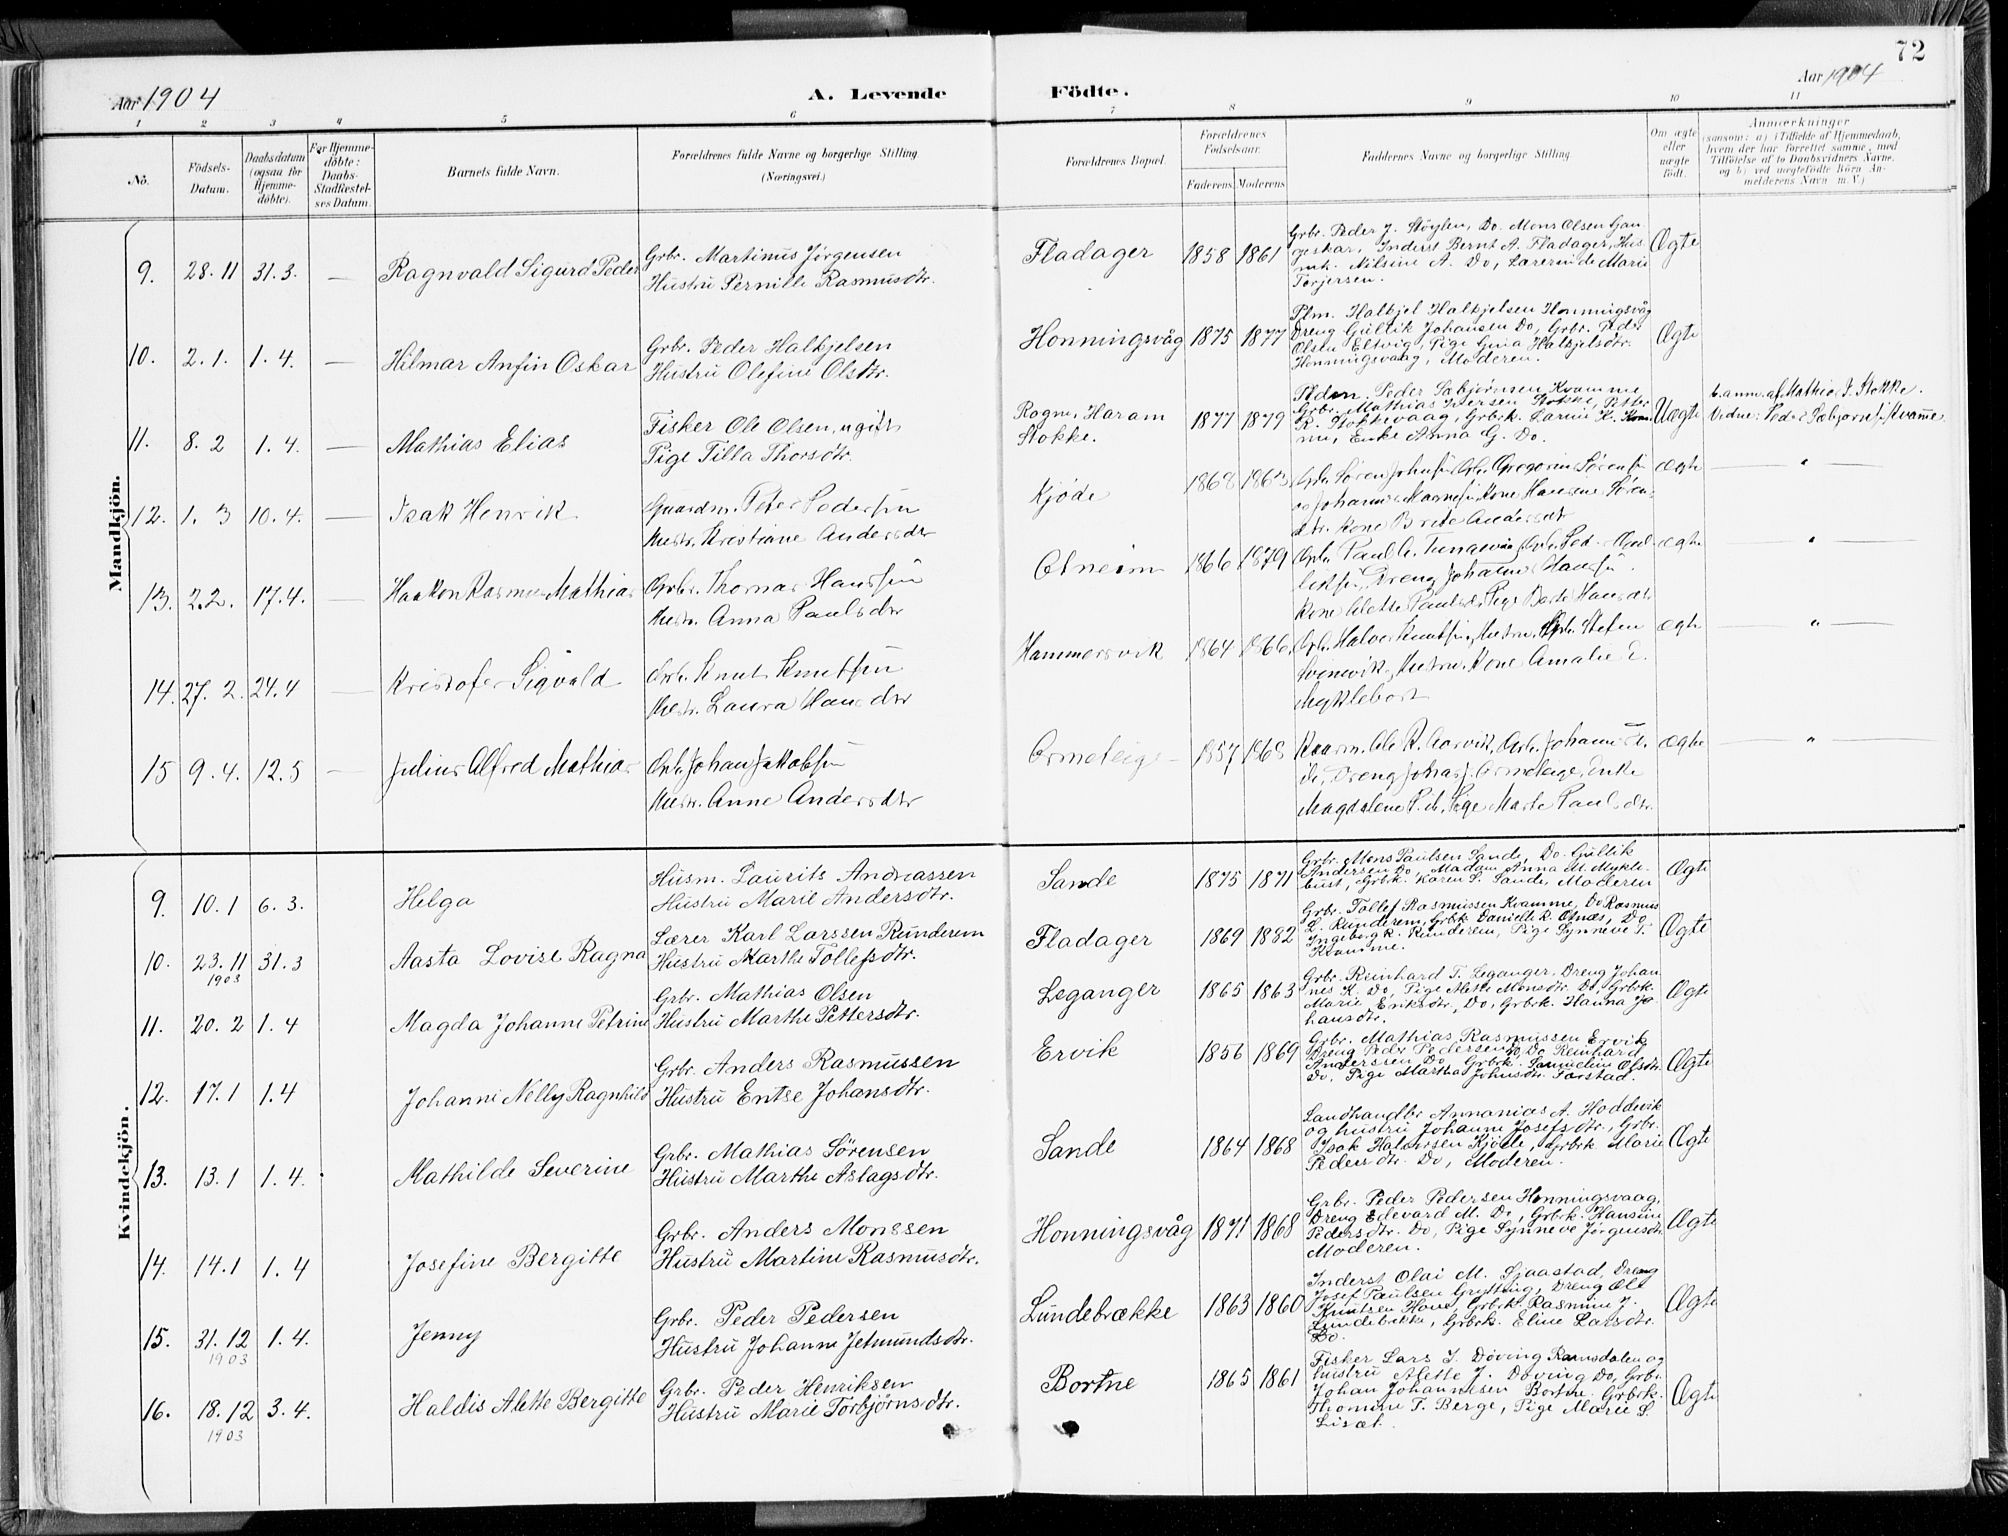 72
Aar 1904
A. Levende Födte.
Aar 1904
1 2 3 4 5 6 7 8 9 10 11
No.
Födsels-Datum.
Daabsdatum (ogsaa for Hjemmedöbte).
For Hjemmedöbte: Daabs-Stadfæstelses Datum.
Barnets fulde Navn.
Forældrenes fulde Navne og borgerlige Stilling (Næringsvei.)
Forældrenes Bopæl.
Forældrenes Födselsaar.
Faderens Moderens
Faddernes Navne og borgerlige Stilling
Om ægte eller uægte födt.
Anmærkninger
(saasom: a) i Tilfælde af Hjemmedaab,
hvem der har forrettet samme, med
Tilföielse af to Daabsvidners Navne,
og b) ved uægtefödte Börn An-
melderens Navn m. V.)
Mandkjön.
9. 28.11 31.3. — Ragnvald Sigurd Peder
Grbr. Martinus Jørgensen
Hustru Pernille Rasmusdtr.
Fladager 1858 1861
Grbr. Peder J. Støylen, Do. Mons Olsen Gan
geskar, Inderst Bernt A. Fladager, Hus
mk. Nilsine A. Do, Lærerinde Marie
Torjersen.
Ægte
10. 2.1. 1.4. — Hilmar Anfin Oskar
Grbr. Peder Halkjelsen
Hustru Olefine Olsdtr.
Honningsvåg 1875 1877
Plm. Halkjel Halkjelsen Honningsvåg
Dreng Gultik Johansen Do, Grbr. Peder
Olsen Eltvig, Pige Gina Halkjelsdtr.
Honningsvaag, Moderen.
Ægte
11. 8.2 1.4. — Mathias Elias
Fisker Ole Olsen, ugift
Pige Tilla Thorsdtr.
Rogne, Haram
Stokke. 1877 1879
Peder Sæbjørnsen Kvamme
Grbr. Mathias Petersen Stokke, Petter
R. Stokkevaag, Grbrk. Larine K. Kvam
me, Enke Anna G. Do.
Uægte
b. anm. af Mathias J. Stokke.
Vidne: Peder Sæbjørnsen Kvamme
12. 1. 3 10.4. — Isak Henrik
Gaardm. Peter Pedersen
Hustr. Kristiane Andersdtr
Kjøde 1868
Grbr. Søren Johnsen Grbr. Gregorius Sørensen
Johannes Magnesen Kone Hansine Søren
dtr. Kone Brite Andersdtr
Ægte — " —
13. 2.2. 17.4. — Haakon Rasmus Mathias
Grbr. Thomas Hanssen
Hustr. Anna Paulsdtr
1866 1879
Grbr. Paul A.
Dreng Johannes Hansen
Kone Alette Paulsd. Pige Berte Hansdtr
Ægte — " —
14. 27.2. 24.4 — Kristofer Sigvald
Grbr. Knut Knutsen
Hustr. Laura Hansdtr
Hammersvik 1864 1866
Grbr. Halvor Knutsen, Hustru, Grbr. Stefen
Hustru. Kone Amalie E.
Myklebost
Ægte — " —
15 9.4. 12.5 — Julius Alfred Mathias
Grbr. Johan Jakobsen
Hustr. Anne Andersdtr
Ormeleige 1857 1868
Ole R. Aarvik, Grbr. Johannes
Dreng Johas J. Ormeleige, Enke
Magdalene P. Pige Marte Paulsdtr.
Ægte — " —
Kvindekjön.
9. 10.1 6.3. Helga
Husm. Laurits Andreassen
Hustru Marie Andersdtr.
Sande 1875 1871
Grbr. Mons Paulsen Sande, Do. Gultik
Andersen Do, Madam Anna M. Mykle-
bust, Grbrk. Karen L. Sande, Moderen
Ægte
10. 23.11 31.3 Aasta Lovise Ragna
1903
Lærer Karl Larssen Runderem
Hustru Marthe Tollefsdtr.
Fladager 1869 1882
Grbr. Tollef Rasmussen Kvamme, Do Rasmus
L. Runderem, Grbrk. Danielle R. Ofnæs, Do
Ingeborg K. Runderem, Pige Synneve T.
Kvamme.
Ægte
11. 20.2 1.4 Magda Johanne Petrine
Grbr. Mathias Olsen
Hustru Marthe Pettersdtr.
Leganger 1865 1863
Grbr. Reinhard T. Leganger, Dreng Johan
nes K. Do, Pige Alette Monsdtr. Do, Grbrk.
Marie Eriksdtr. Do, Grbrk. Hanna Jo
hansdtr.
Ægte
12. 17.1 1.4 Johanne Nelly Ragnhild
Grbr. Anders Rasmussen
Hustru Entse Johansdtr.
Ervik 1856 1869
Grbr. Mathias Rasmussen Ervik
Dreng Peder Pedersen Do, Do Reinhard
Anderssen Do, Grbrk. Sanueline Olsdtr.
Do, Pige Martha Johnsdtr. Førstad.
Ægte
13. 13.1 1.4. Mathilde Severine
Grbr. Mathias Sørensen
Hustru Marthe Aslagsdtr.
Sande 1864 1868
Landhandlbr Annanias A. Hoddevik
og hustru Johanne Josefsdtr., Grbr.
Isak Halvorsen Kjøde, Grbrk Marie
Pedersdtr. Do, Moderen.
Ægte
14. 14.1 1.4 Josefine Bergitte
Grbr. Anders Monssen
Hustru Martine Rasmusdtr.
Honningsvåg 1871 1868
Grbr. Peder Pedersen Honningsvaag,
Dreng Edevard M. Do, Grbrk. Hansine
Pedersdtr. Do, Pige Synneve Jørgensdtr
Moderen.
Ægte
15. 31.12 1.4. Jenny
1903
Grbr. Peder Pedersen
Hustru Johanne Jetmundsdtr.
Lundebrække 1863 1860
Inderst Olai M. Sjaastad, Dreng
Josef Paulsen Grytting, Dreng Ole
Knutsen Hove, Grbrk. Rasmine J.
Lundebrække, Grbrk. Eline Larsdtr.
Do.
Ægte
16. 18.12 3.4. Haldis Alette Bergitte
1903
Grbr. Peder Henriksen
Hustru Marie Torbjørnsdtr.
Bortne 1865 1861
Fisker Lars J. Døving Ramsdalen og
hustru Alette J. Døving Do, Grbr.
Johan Johannesen Bortne Grbrk.
Thomine T. Berge, Pige Marie S.
Lisæt.
Ægte